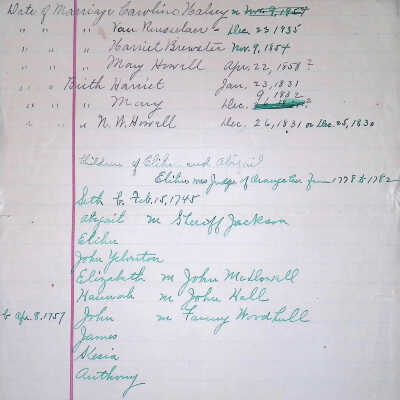 Date of Marriage Caroline Halsey m Nov. 9, 1854
" " " Van Rensselaer - Dec 23 1835
" " " Harriet Brewster Nov. 9, 1854
" " " Mary Howell Apr. 22, 1858?
" " Birth Harriet Jan. 23, 1831
" " " Mary Dec. 9, 1832?
" " " N. W. Howell Dec. 26, 1831 or Dec. 25, 1830
Children of Elihu and Abigail
Elihu was Judge of Orange Co from 1778 to 1782
Seth b. Feb. 15, 1745
Abigail m Sheriff Jackson
Elihu
John Yelverton
Elizabeth m John McDowell
Hannah m John Hall
b Apr. 8, 1757 John m Fanny Woodhull
James
Kesia
Anthony